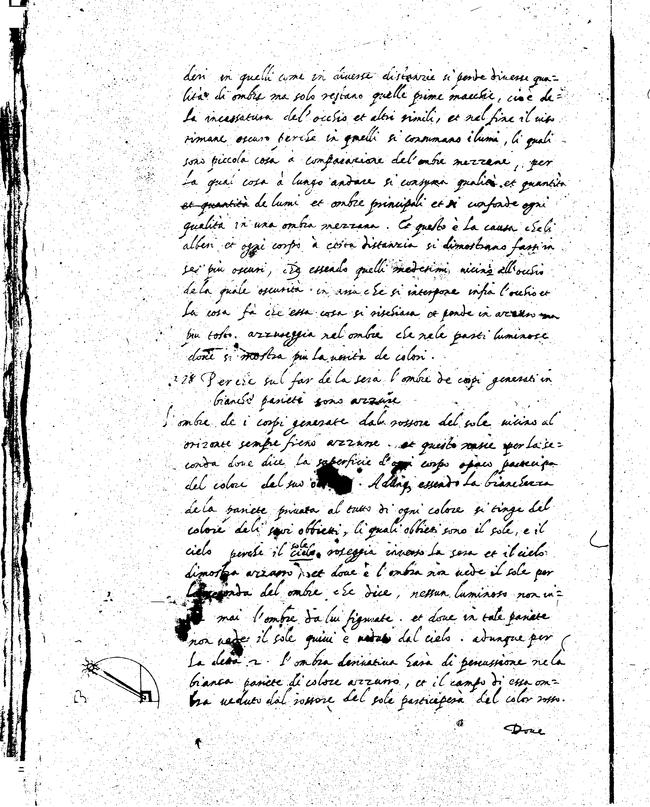 deri in quelli come in diverse distanzie si perde diverse qua=
lità di ombre ma solo restano quelle prime macchie, cioè de=
la incassatura del'occhio et altri simili, et nel fine il viso
rimane oscuro perche in quelli si consumano i lumi, li quali
sono piccola cosa à comparazione del'ombre mezzane, per
la qual cosa à lungo andare si consuma qualità et quantità
et quantità de lumi et ombre principali et si confonde ogni
qualità in una ombra mezzana. Et questo è la causa che li
alberi et ogni corpo à certa distanzia si dimostrano farsi in
sei più oscuri, che essendo quelli medesimi vicini all'occhio
de la quale oscurità in aria che si interpone infra l'occhio et
la cosa fa che essa cosa si rischiara et pende in azzurro ma
più tosto azzureggia nel ombre che nele parti luminose
dove si mostra più la verità de colori.
228 Perche sul far de la sera l'ombre de corpi generati in
bianche parieti sono azzurre
l'ombre de i corpi generate dala rossore del sole vicino al
orizonte sempre fieno azzurre. et questo nasie per la se=
conda dove dice la superficie d'ogni corpo opaco participa
del colore del suo Adunq essendo la bianchezza
de la pariete privata al tutto di ogni colore si tinge del
colore deli suoi obbietti, li quali obbietti sono il sole, e il
cielo perche il cielo sole roseggia inverso la sera et il cielo
dimostra azzurro et dove è l'ombra non vede il sole per
la seconda del ombre che dice, nessun luminoso non vi=
mai l'ombre da lui figurate. et dove in tale pariete
non vede il sole quivi è veduto dal cielo. adunque per
la detta 2. l'ombra derivativa harà di percussione nela
bianca pariete di colore azzurro, et il campo di essa om=
bra veduto dal rossore del sole participerà del color rosso.
Dove